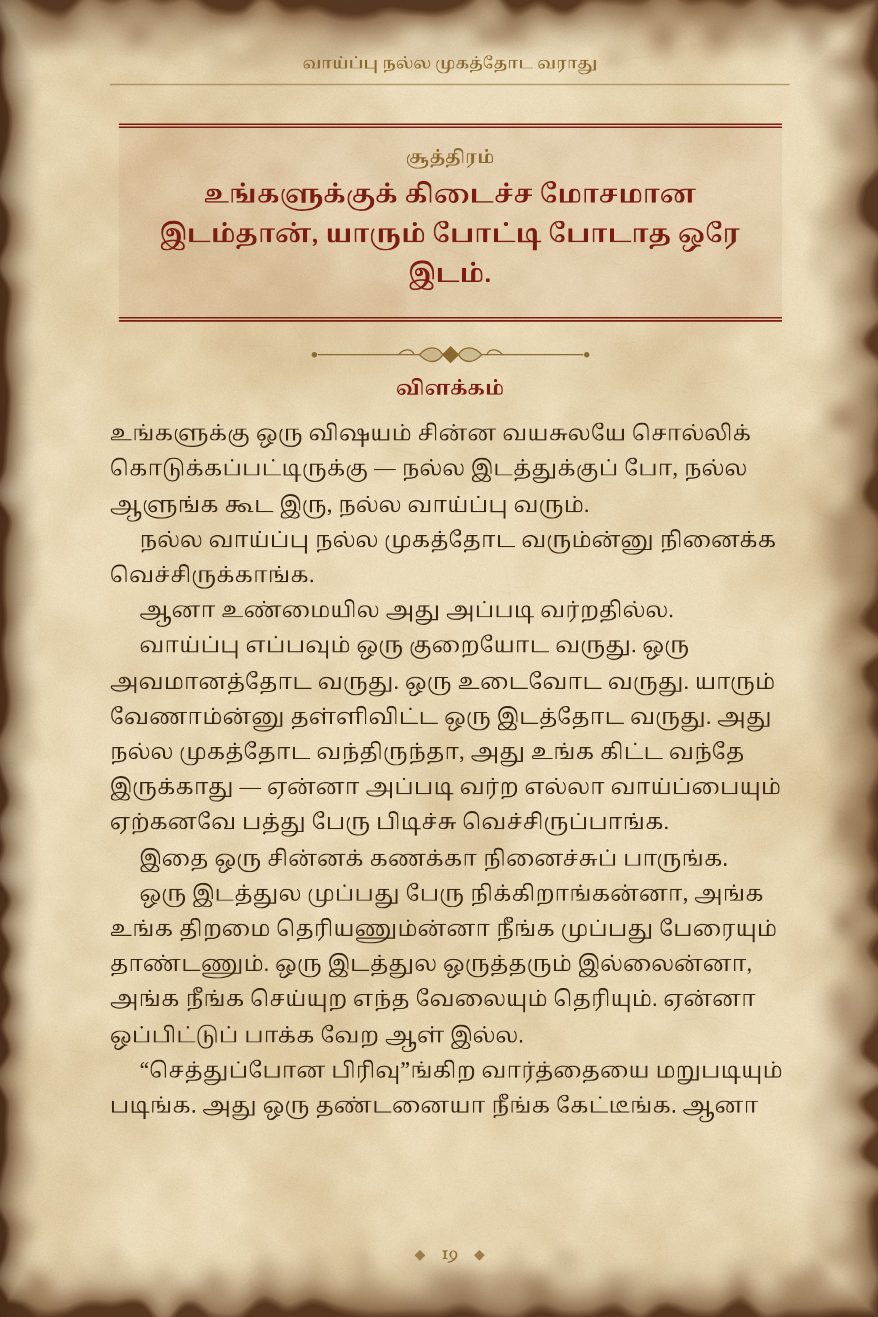 வாய்ப்பு நல்ல முகத்தோட வராது
சூத்திரம்
உங்களுக்குக் கிடைச்ச மோசமான
இடம்தான், யாரும் போட்டி போடாத ஒரே
இடம்.
விளக்கம்
உங்களுக்கு ஒரு விஷயம் சின்ன வயசுலயே சொல்லிக்
கொடுக்கப்பட்டிருக்கு — நல்ல இடத்துக்குப் போ, நல்ல
ஆளுங்க கூட இரு, நல்ல வாய்ப்பு வரும்.
நல்ல வாய்ப்பு நல்ல முகத்தோட வரும்ன்னு நினைக்க
வெச்சிருக்காங்க.
ஆனா உண்மையில அது அப்படி வர்றதில்ல.
வாய்ப்பு எப்பவும் ஒரு குறையோட வருது. ஒரு
அவமானத்தோட வருது. ஒரு உடைவோட வருது. யாரும்
வேணாம்ன்னு தள்ளிவிட்ட ஒரு இடத்தோட வருது. அது
நல்ல முகத்தோட வந்திருந்தா, அது உங்க கிட்ட வந்தே
இருக்காது — ஏன்னா அப்படி வர்ற எல்லா வாய்ப்பையும்
ஏற்கனவே பத்து பேரு பிடிச்சு வெச்சிருப்பாங்க.
இதை ஒரு சின்னக் கணக்கா நினைச்சுப் பாருங்க.
ஒரு இடத்துல முப்பது பேரு நிக்கிறாங்கன்னா, அங்க
உங்க திறமை தெரியணும்ன்னா நீங்க முப்பது பேரையும்
தாண்டணும். ஒரு இடத்துல ஒருத்தரும் இல்லைன்னா,
அங்க நீங்க செய்யுற எந்த வேலையும் தெரியும். ஏன்னா
ஒப்பிட்டுப் பாக்க வேற ஆள் இல்ல.
“செத்துப்போன பிரிவு”ங்கிற வார்த்தையை மறுபடியும்
படிங்க. அது ஒரு தண்டனையா நீங்க கேட்டீங்க. ஆனா
19